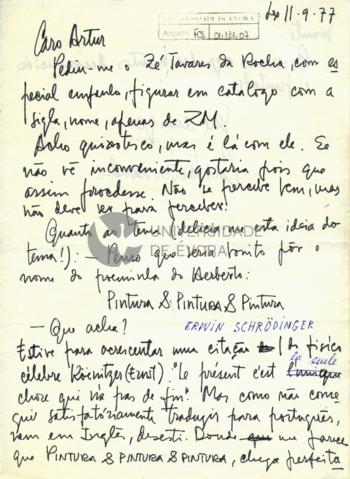 Lx 11-9-77
UNIVERSIDADE DE ÉVORA
Arquivo FCS 01.131.07
Caro Artur
Pediu-me o Zé Tavares da Rocha, com es
pecial empenho, figurar em catálogo com a
sigla, nome, apenas de ZM.
Acho quixotesco, mas é lá com ele. Se
não vê inconveniente, gostaria pois que
assim procedesse. Não se percebe bem, mas
não deve ser para perceber!
Quanto ao tema (delícia esta ideia do
tema!): — Penso que seria bonito pôr o
nome do do Herberto:
PINTURA & PINTURA & PINTURA
— Que acha?
ERWIN SCHRÖDINGER
Estive para acrescentar uma citação do físico
célebre (Ernst): "Le présent c'est la seule
chose qui n'a pas de fin". Mas como não conse
gui satisfatòriamente traduzir para português,
nem em Inglês, desisti. Donde me parece
que PINTURA & PINTURA & PINTURA, chega perfeita
UNIVERSIDADE
DE ÉVORA